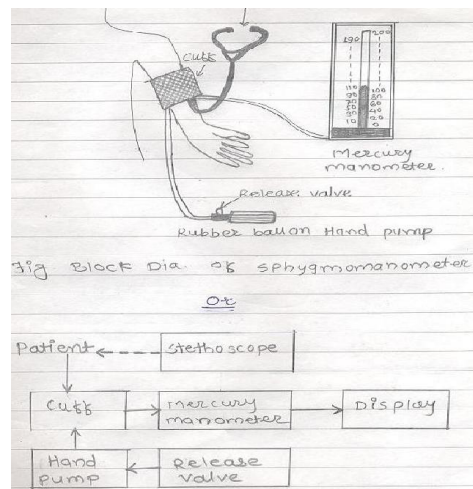 Cuff
190
200
110
100
90
80
70
60
50
40
30
20
10
0
Mercury
manometer.
Release valve
Rubber ballon Hand pump
Fig Block Dia of sphygmomanometer
Or
Patient
Stethoscope
Cuff
Mercury
manometer
Display
Hand
pump
Release
valve